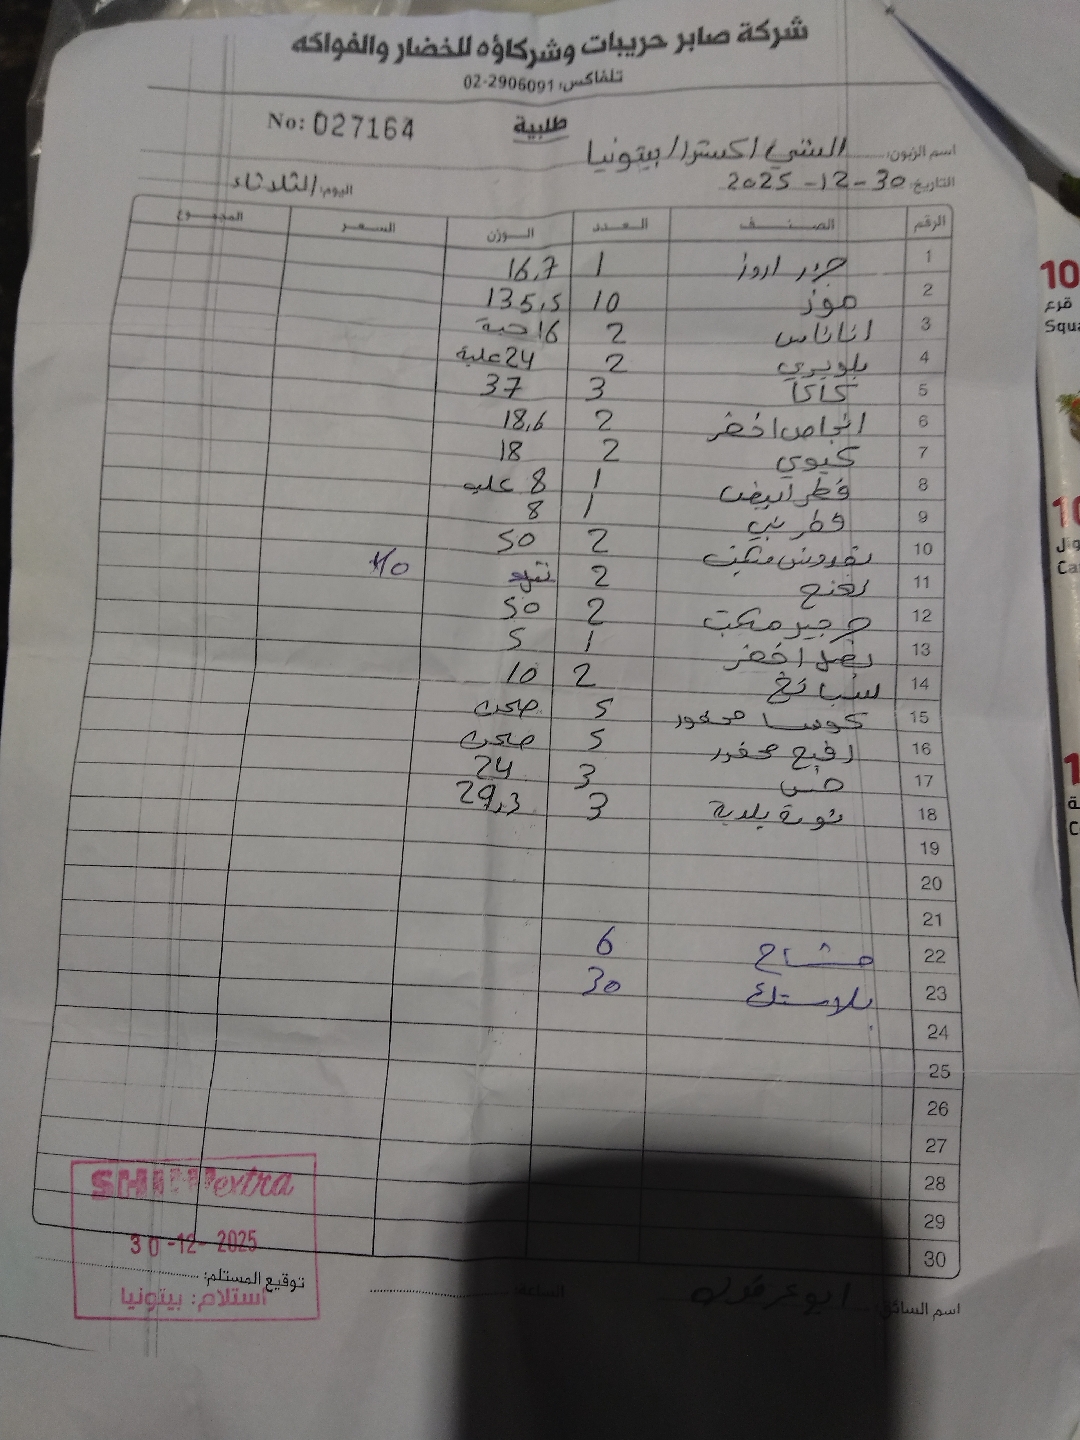 شركة صابر حريبات وشركاؤه للخضار والفواكه
تلفاكس: 02-2906091
No: 027164
طلبية
اسم الزبون: الشني اكسترا / بيتونيا
التاريخ: 30-12-2025
اليوم: الثلاثاء
الرقم الصنف العدد الوزن السعر المجموع
1 جزر اروز 1 16,7
2 موز 10 135,5
3 اناناس 2 16 حبة
4 بلوبيري 2 24 علبة
5 كاكا 3 37
6 انجاص اخضر 2 18,6
7 كيوي 2 18
8 فطر ابيض 1 8 علبه
9 فطر بني 1 8
10 بقدونس مكبت 2 50
11 نعنع 2
12 جرجير مكبت 2 50
13 بصل اخضر 1 5
14 سبانخ 2 10
15 كوسا محفور 5 صحن
16 محفور 5 صحن
17 خس 3 24
18 بلدية 3 29,3
19
20
21
22 مشتاح 6
23 بلاستك 30
24
25
26
27
28
29
30
SHINI extra
30-12-2025
استلام: بيتونيا
توقيع المستلم:
الساعة:
اسم السائق:
10
قرع
Squa
10
Ca
1
ة
C